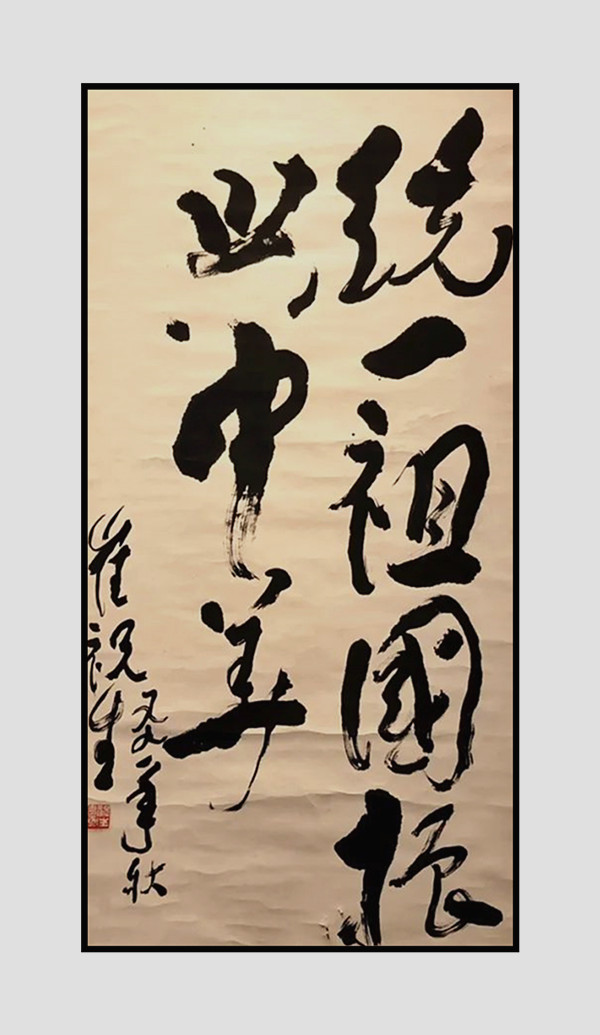 統一祖國振
興中華
秋
崔祝生